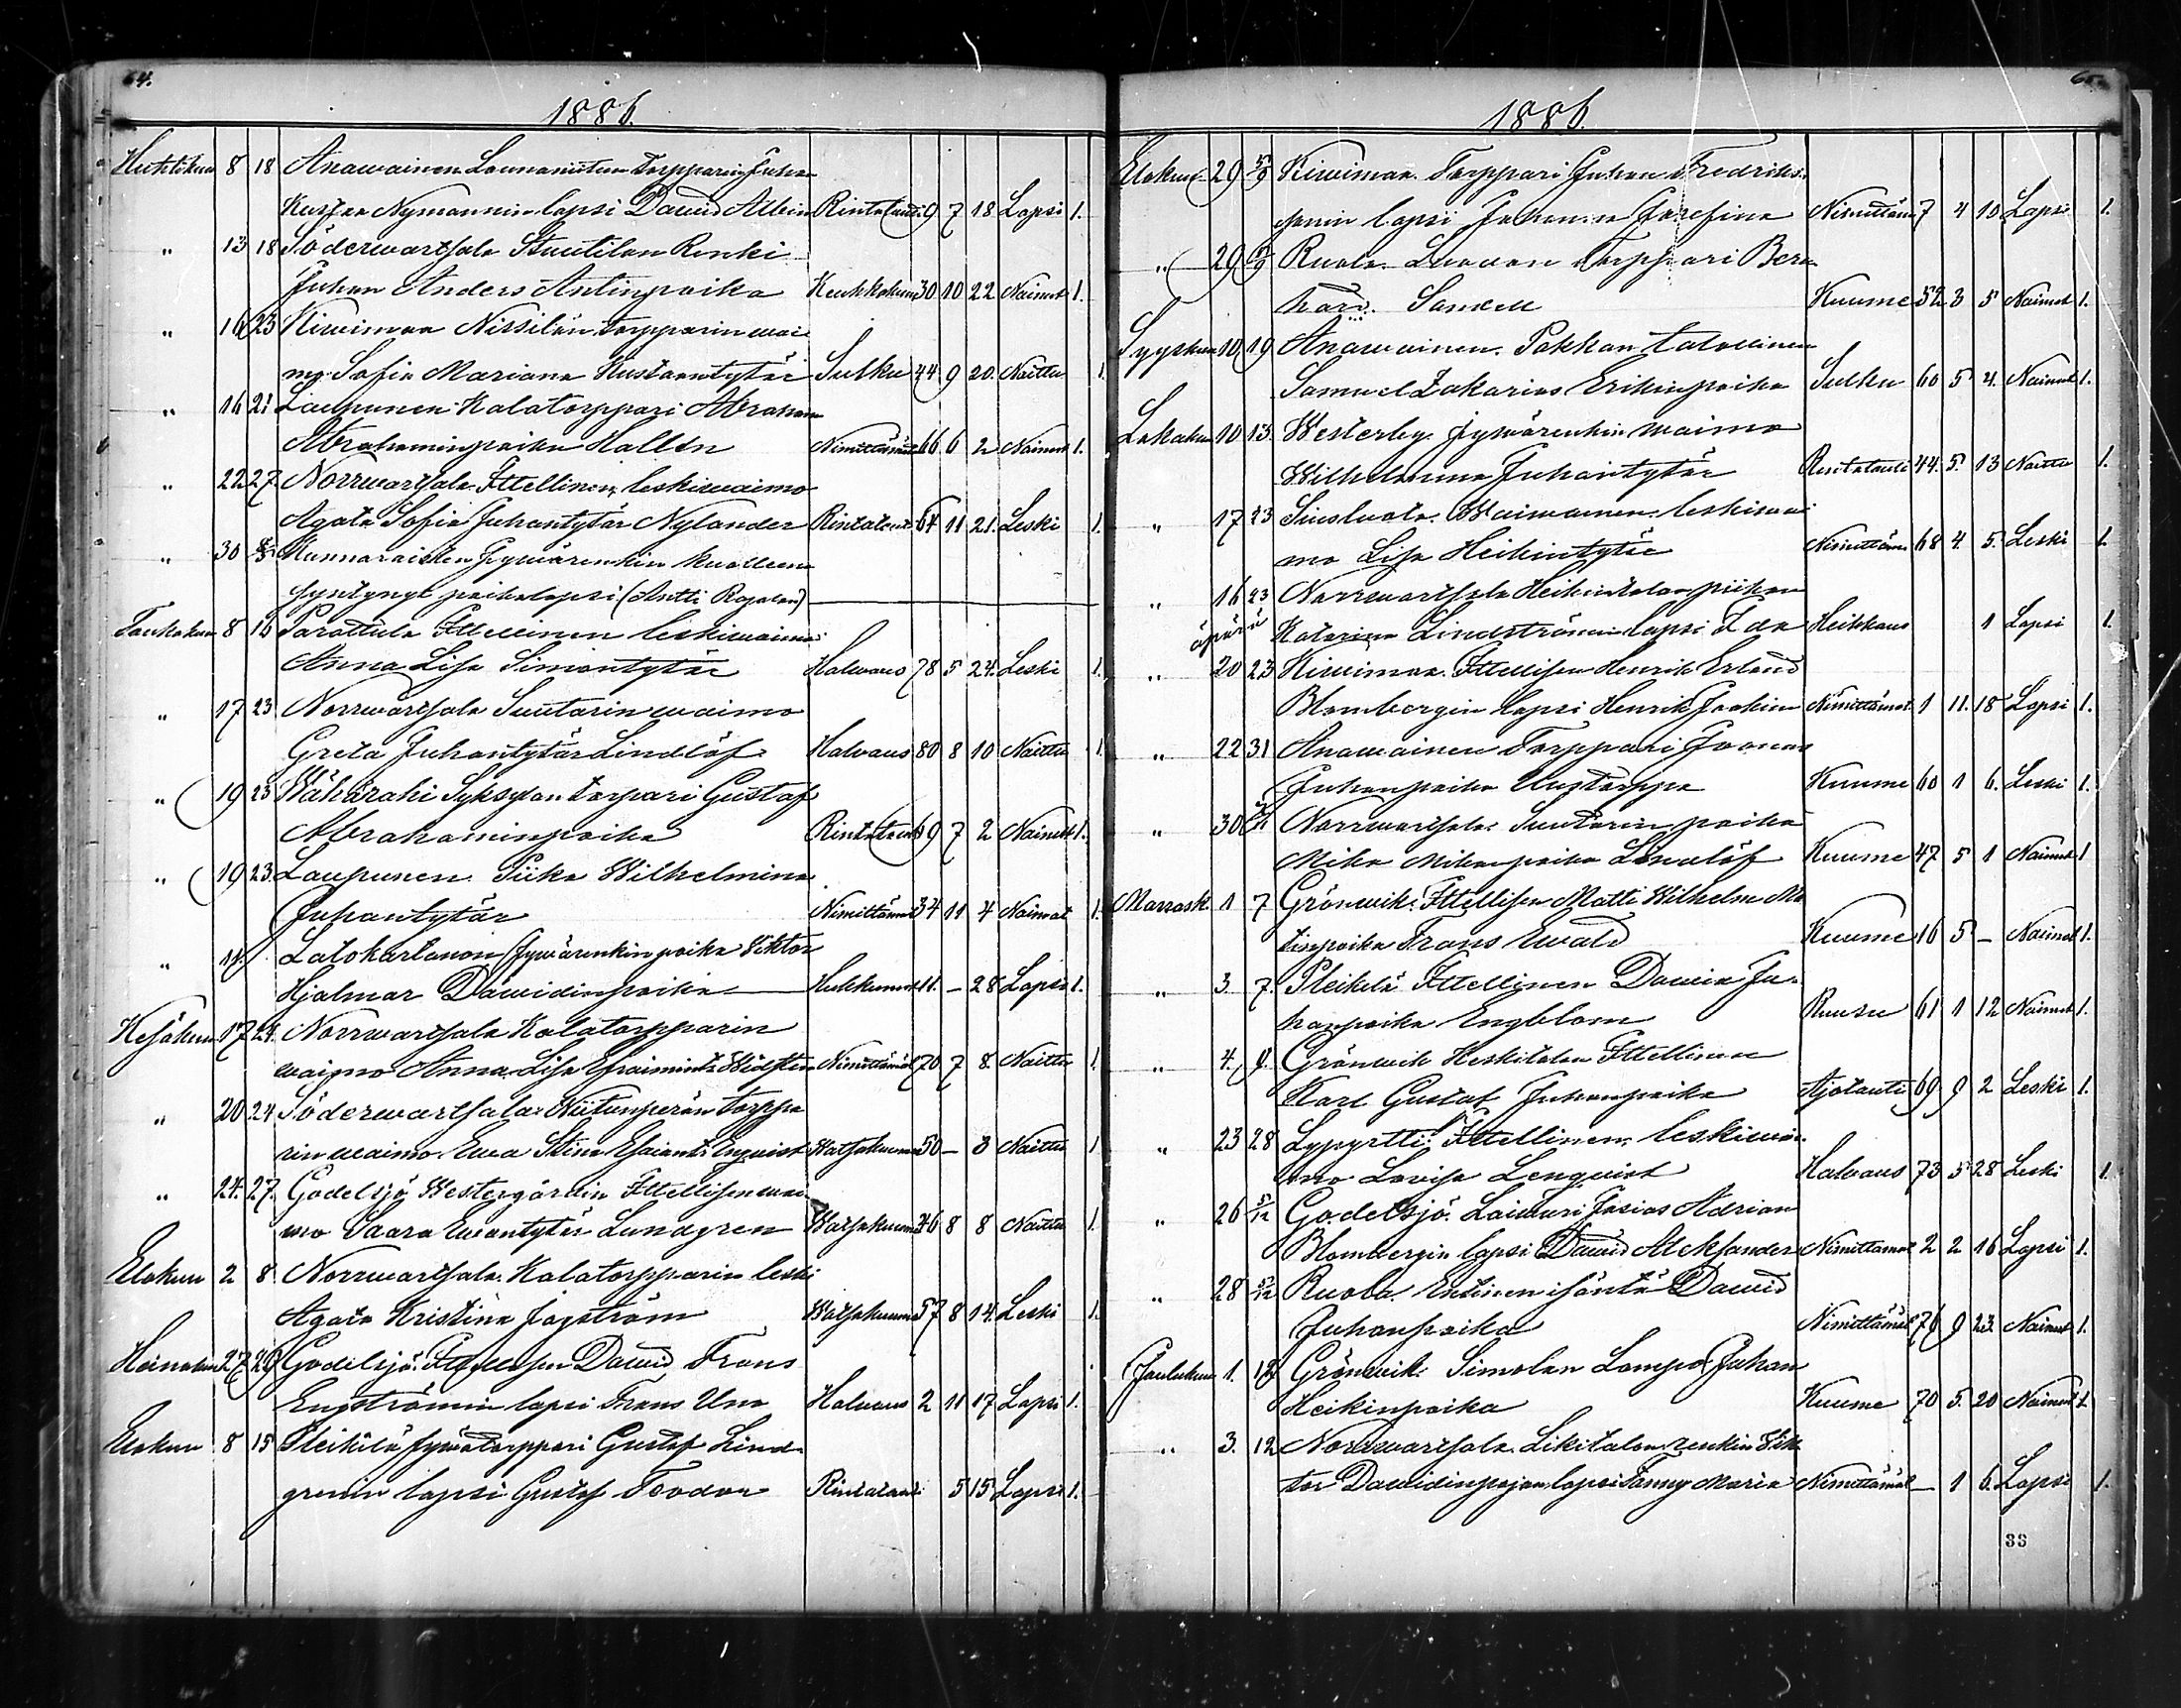 64.
1886.
Huhtikuu 8 18 Anawainen Lounamisteen torpparin Juha
Kustaa Nymannin lapsi Dawid Albin Rintatauti 9 7 18 Lapsi 1.
" 13 18 Söderwartsala Renki
Juhan Anders Antinpoika Keuhkokuume 30 10 22 Nainut 1.
" 16 23 Kiwimaa Nissilän torpparin wai
mo Sofia Mariana Kustaantytär Sulku 44 9 20. Naittu 1.
" 16 21 Laupunen Kalatorppari Abraham
Abrahaminpoika Hallen Nimittämät 66 6 2 Nainut 1.
" 22 27. Norrwartsala Ittellinen leskiwaimo
Agata Sofia Juhantytär Nylander Rintataut 64 11 21. Leski 1.
" 30 Kunnaraisten Jywärenkin kuolleena
syntynyt poikalapsi (Antti Rajalan)
Toukokuu 8 16 Parattula Ittellinen leskiwaimo
Anna Lisa Simontytär Halwaus 78 5 24. Leski 1.
" 17 23. Norrwartsala Suutarin waimo
Greta Juhantytär Lindlöf Halwaus 80 8 10 Naittu 1.
" 19 23 Wähärahi Syksylan torpari Gustaf
Abrahaminpoika Rintataut 69 7 2 Nainut 1.
" 19 23. Laupunen Piika Wilhelmina
Juhantytär Nimittämät 34 11 4 Naimat 1.
" 11 Latokartanon Jywärenkin poika Viktor
Hjalmar Dawidinpoika Hukkunut 11. – 28 Lapsi 1.
Kesäkuu 17 24. Norrwartsala Kalatorpparin
waimo Anna Lisa Efraimint. Nimittämät 70 7 8. Naittu 1.
" 20 24 Söderwartsala Niitunperän torppa
rin waimo Ewa Stina Esaiant. Enqvist Watsakuume 50 – 3 Naittu 1
" 24. 27. Godelsjö Westergårdin Ittellisen wai
mo Saara Ewantytär Lundgren Watsakuume 46 8 8 Naittu 1.
Elokuu 2 8. Norrwartsala Kalatorpparin leski
Agata Kristina Jagström Watsakuume 57 8 14. Leski 1.
Heinakuu 27 29 Godelsjö. Ittellisen Dawid Frans
Engströmin lapsi Frans Uno Halwaus 2 11 17 Lapsi 1.
Elokuu 8 15 Pleikilä Jywätorppari Gustaf Lind
grenin lapsi Gustaf Teodor Rintataut 5 15 Lapsi 1.
65.
1886.
Elokuu 29 5/9 Kiwimaa. Torppari Juhan Fredriks
sonin lapsi Johanna Josefina Nimittäm 7 4 10 Lapsi 1.
" 29 5/9 Ruola. Torppari Bern
hard. Sandell Kuume 52 3 5 Nainut 1.
Syyskuu 10 19 Anawainen. Pakkan talollinen
Samuel Zakarias Erikinpoika Sulku 60 5 4. Nainut 1.
Lokakuu 10 13. Westerby Jywärenkin waimo
Wilhelmina Juhantytär Rintatauti 44. 5. 13 Naittu 1.
" 17 23 Sinsluoto. leskiwai
mo Lisa Heikintytär Nimittäm 68 4. 5. Leski 1.
" 16 23 Norrwartsala Heikintalon piikan
äpärä Katarina Lindströmin lapsi Ida Heikkous 1 Lapsi 1.
" 20 23 Kiwimaa. Ittellisen Henrik Erland
Blombergin lapsi Henrik Joakim Nimittämät. 1 11. 18 Lapsi 1.
" 22 31 Anawainen Torppari Joonas
Juhanpoika Uustorppa Kuume 60 1 6. Leski 1.
" 30 Norrwartsala Suutarin poika
Mika Mikanpoika Lindlöf Kuume 47 5 1 Nainut 1
Marrask. 1 7 Grönwik. Ittellisen Matti Wilhelm Ma
tinpoika Frans Ewald Kuume 16 5 – Naimat 1.
" 3. 7. Pleikilä Ittellinen Dawid Ju
hanpoika Engblom Ruusu 61 1 12 Nainut 1.
" 4. 9. Grönwik Keskitalon Ittellinen
Karl Gustaf Juhanpoika Ajotauti 69 9 2 Leski 1.
" 23 28 Lypyrtti Ittellinen leskiwai
mo Lovisa Lenqvist Halwaus 73 5 28 Leski 1.
" 26 5/12 Godelsjö. Laituri Josias Adrian
Blombergin lapsi Dawid Aleksander Nimittämät 2 2 16 Lapsi 1.
" 28 5/12 Ruola Entinen isäntä Dawid
Juhanpoika Nimittämät 76 9 23. Nainut 1.
Joulukuu 1. 12 Grönwik Simolan Lampo Juhan
Heikinpoika Kuume 70 5. 20 Nainut 1.
" 3. 12 Norrwartsala Likitalon renkin Vik
tor Dawidinpojan lapsi Fanny Maria Nimittämät – 1 6. Lapsi 1.
33